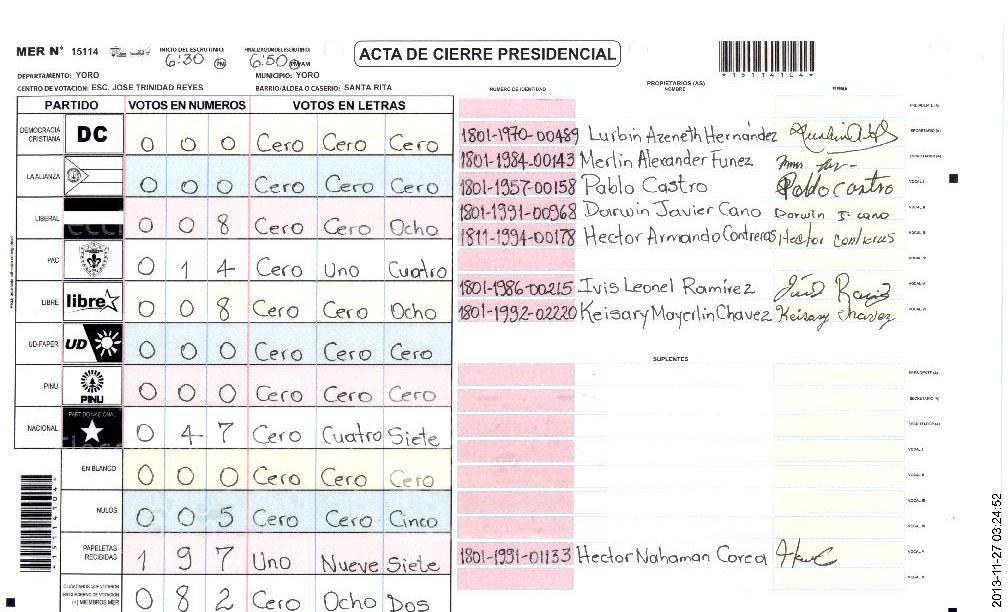 MER N° 15114 INICIO DEL ESCRUTINIO: 6:30 PM FINALIZACION DEL ESCRUTINIO: 6:50 PM/AM ACTA DE CIERRE PRESIDENCIAL *15114104*
DEPARTAMENTO: YORO MUNICIPIO: YORO
CENTRO DE VOTACION: ESC. JOSE TRINIDAD REYES BARRIO/ALDEA O CASERIO: SANTA RITA
PARTIDO VOTOS EN NUMEROS VOTOS EN LETRAS
DEMOCRACIA CRISTIANA DC 0 0 0 Cero Cero Cero
LA ALIANZA 0 0 0 Cero Cero Cero
LIBERAL 0 0 8 Cero Cero Ocho
PAC 0 1 4 Cero Uno Cuatro
LIBRE libre 0 0 8 Cero Cero Ocho
UD-FAPER UD 0 0 0 Cero Cero Cero
PINU PINU 0 0 0 Cero Cero Cero
NACIONAL PARTIDO NACIONAL 0 4 7 Cero Cuatro Siete
EN BLANCO 0 0 0 Cero Cero Cero
NULOS 0 0 5 Cero Cero Cinco
PAPELETAS RECIBIDAS 1 9 7 Uno Nueve Siete
CIUDADANOS QUE VOTARON EN CUADERNO DE VOTACION (+) MIEMBROS MER 0 8 2 Cero Ocho Dos
PROPIETARIOS (AS)
NUMERO DE IDENTIDAD NOMBRE FIRMA
PRESIDENTE (A)
1801-1970-00489 Lurbin Azeneth Hernández SECRETARIO (A)
1801-1984-00143 Merlin Alexander Funez ESCRUTADOR (A)
1801-1957-00158 Pablo Castro Pablo Castro VOCAL I
1801-1991-00968 Darwin Javier Cano Darwin J. cano VOCAL II
1811-1994-00178 Hector Armando Contreras Hector contreras VOCAL III
VOCAL IV
1801-1986-00215 Ivis Leonel Ramírez VOCAL V
1801-1992-02220 Keisary Mayerlin Chavez Keisary Chavez VOCAL VI
SUPLENTES
PRESIDENTE (A)
SECRETARIO (A)
ESCRUTADOR (A)
VOCAL I
VOCAL II
VOCAL III
VOCAL IV
1801-1991-01133 Hector Nahaman Corea VOCAL V
VOCAL VI
2013-11-27 03:24:52